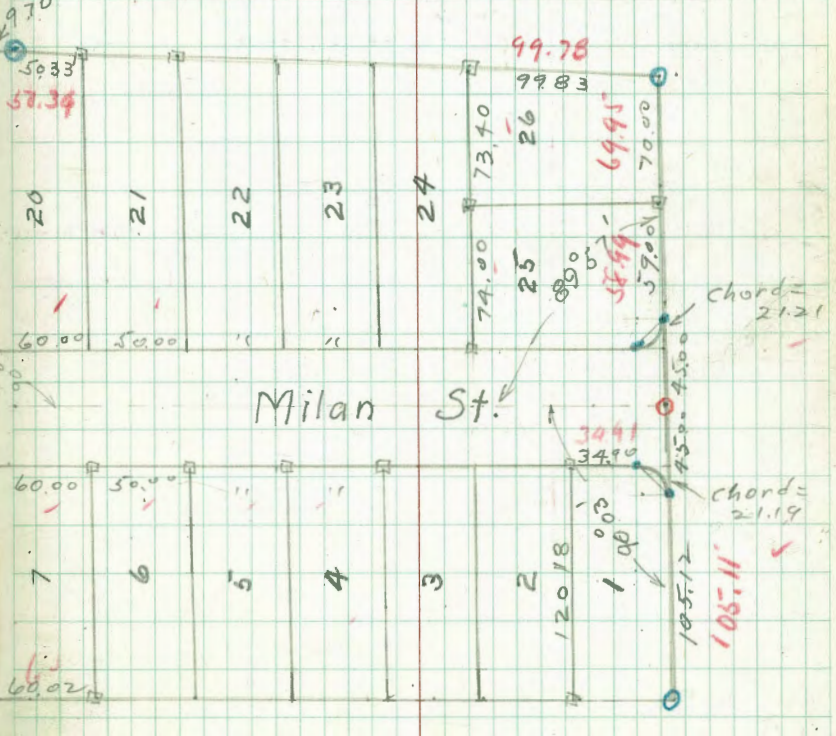 970
50.33
50.34
99.78
99.83
20
21
22
23
24
73.40
26
69.95
70.00
74.00
25
89°57'
58.99
59.00
chord=
21.21
60.00
50.00
"
"
45.00
Milan St.
45.00
34.91
34.90
60.00
50.00
"
"
chord=
21.19
7
6
5
4
3
2
120.18
1
90°03'
105.12
105.11
60.02